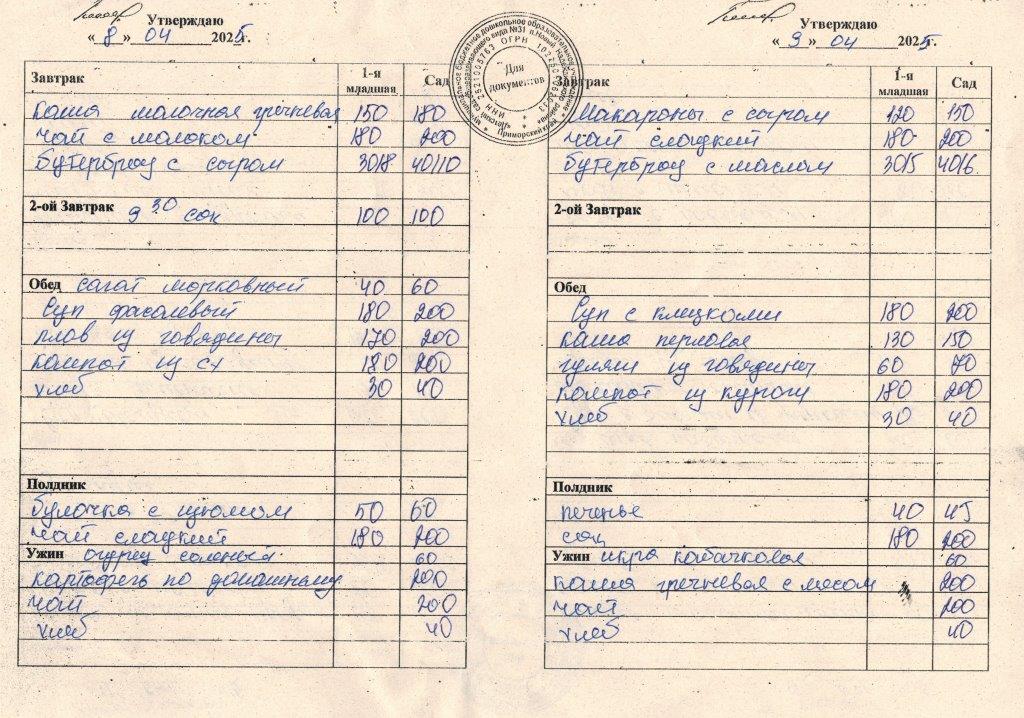 Утверждаю
« 8 » 04 2025г.
Завтрак 1-я младшая Сад
каша молочная гречневая 150 180
чай с молоком 180 200
бутерброд с сыром 30/8 40/10
2-ой Завтрак 9 30 сок 100 100
Обед салат морковный 40 60
Суп фасолевый 180 200
плов из говядины 170 200
компот из сх 180 200
хлеб 30 40
Полдник
булочка с изюмом 50 60
чай сладкий 180 200
Ужин огурец соленый 60
картофель по домашнему 200
чай 200
хлеб 40
Для документов
Утверждаю
« 9 » 04 2025г.
Завтрак 1-я младшая Сад
Макароны с сыром 120 150
чай сладкий 180 200
бутерброд с маслом 30/5 40/6
2-ой Завтрак
Обед
Суп с клецками 180 200
каша перловая 130 150
гуляш из говядины 60 70
компот из кураги 180 200
хлеб 30 40
Полдник
печенье 40 45
сок 180 200
Ужин икра кабачковая 60
каша гречневая с мясом 200
чай 200
хлеб 40